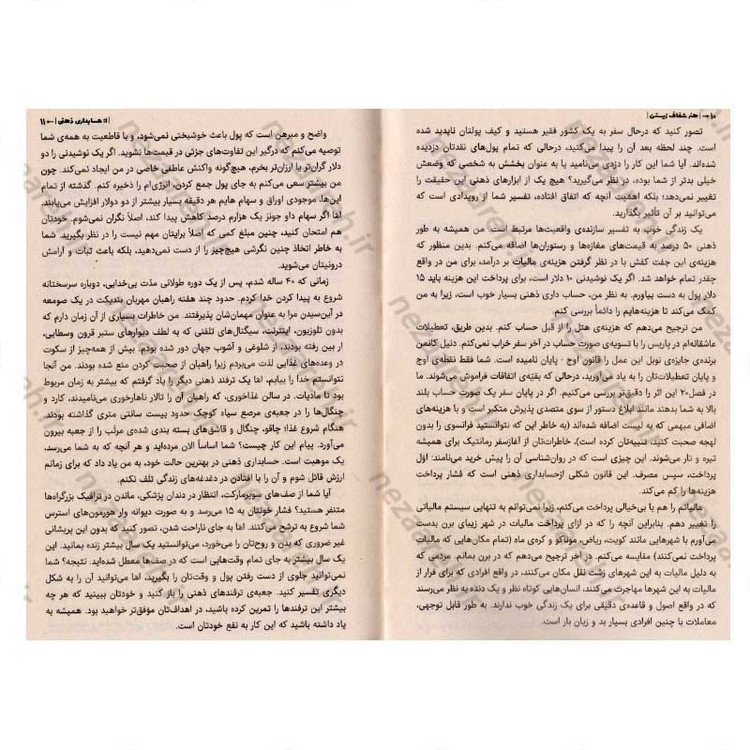 ۱۰ هنر شفاف زیستن
تصور کنید که درحال سفر به یک کشور فقیر هستید و کیف پولتان ناپدید شده
است. چند لحظه بعد آن را پیدا می‌کنید، درحالی که تمام پول‌های نقدتان دزدیده
شده‌اند. آیا شما این کار را دزدی می‌نامید یا به عنوان بخشش به شخصی که وضعش
خیلی بدتر از شما بوده، در نظر می‌گیرید؟ هیچ یک از ابزارهای ذهنی این حقیقت را
تغییر نمی‌دهد؛ بلکه اهمیت آنچه که اتفاق افتاده، تفسیر شما از رویدادی است که
می‌توانید بر آن تأثیر بگذارید.
یک زندگی خوب به تفسیر سازنده‌ی واقعیت‌ها مرتبط است. من همیشه به طور
ذهنی ۵۰ درصد به قیمت‌های مغازه‌ها و رستوران‌ها اضافه می‌کنم. بدین منظور که
هزینه‌ی این جفت کفش با در نظر گرفتن هزینه‌ی مالیات بر درآمد، برای من در واقع
چقدر تمام خواهد شد. اگر یک نوشیدنی ۱۰ دلار است، برای پرداخت این هزینه باید ۱۵
دلار پول به دست بیاورم. به نظر من، حساب داری ذهنی بسیار خوب است، زیرا به من
کمک می‌کند تا هزینه‌هایم را دائماً بررسی کنم.
من ترجیح می‌دهم که هزینه‌ی هتل را از قبل حساب کنم. بدین طریق، تعطیلات
عاشقانه‌ام در پاریس را با تسویه‌ی صورت حساب در آخر سفر خراب نمی‌کنم. دنیل کانمن
برنده‌ی جایزه‌ی نوبل این عمل را قانون اوج - پایان نامیده است. شما فقط نقطه‌ی اوج
و پایان تعطیلات‌تان را به یاد می‌آورید، درحالی که بقیّه‌ی اتفاقات فراموش می‌شوند. ما
در فصل۲۰ این اثر را دقیق‌تر بررسی می‌کنیم. اگر در پایان سفر یک صورت حساب بلند
بالا به شما بدهند مانند ابلاغ دستور از سوی متصدی پذیرش متکبر است و با هزینه‌های
اضافی مبهمی که به لیست اضافه شده‌اند (به خاطر این که نتوانستید فرانسوی را بدون
لهجه صحبت کنید، تنبیه‌تان کرده است)، خاطرات‌تان از آغازسفر رمانتیک برای همیشه
تیره و تار می‌شوند. این چیزی است که در روان‌شناسی آن را پیش خرید می‌نامند: اوّل
پرداخت، سپس مصرف. این قانون شکلی ازحسابداری ذهنی است که فشار پرداخت
هزینه‌ها را کم می‌کند.
مالیاتم را هم با بی‌خیالی پرداخت می‌کنم، زیرا نمی‌توانم به تنهایی سیستم مالیاتی
را تغییر دهم. بنابراین آنچه را که در ازای پرداخت مالیات در شهر زیبای برن بدست
می‌آورم با شهرهایی مانند کویت، ریاض، موناکو و کره‌ی ماه (تمام مکان‌هایی که مالیات
پرداخت نمی‌کنند) مقایسه می‌کنم. در آخر ترجیح می‌دهم که در برن بمانم. مردمی که
به دلیل مالیات به این شهرهای زشت نقل مکان می‌کنند، در واقع افرادی که برای فرار از
مالیات به این شهرها مهاجرت می‌کنند، انسان‌هایی کوتاه نظر و یک دنده به نظر می‌رسند
که در واقع اصول و قاعده‌ی دقیقی برای یک زندگی خوب ندارند. به طور قابل توجهی،
معاملات با چنین افرادی بسیار بد و زیان بار است.
۱: حسابداری ذهنی ۱۱
واضح و مبرهن است که پول باعث خوشبختی نمی‌شود، و با قاطعیت به همه‌ی شما
توصیه می‌کنم که درگیر این تفاوت‌های جزئی در قیمت‌ها نشوید. اگر یک نوشیدنی را دو
دلار گران‌تر یا ارزان‌تر بخرم، هیچ‌گونه واکنش عاطفی خاصی در من ایجاد نمی‌کند. چون
من بیشتر سعی می‌کنم به جای پول جمع کردن، انرژی‌ام را ذخیره کنم. گذشته از تمام
این‌ها، موجودی اوراق و سهام هایم هر دقیقه بسیار بیشتر از دو دولار افزایش می‌یابند،
امّا اگر سهام داو جونز یک هزارم درصد کاهش پیدا کند، اصلاً نگران نمی‌شوم. خودتان
هم امتحان کنید، چنین مبلغ کمی که اصلاً برایتان مهم نیست را در نظر بگیرید. شما
به خاطر اتخاذ چنین نگرشی هیچ‌چیز را از دست نمی‌دهید، بلکه باعث ثبات و آرامش
درونیتان می‌شوید.
زمانی که ۴۰ ساله شدم، پس از یک دوره طولانی مدّت بی‌خدایی، دوباره سرسختانه
شروع به پیدا کردن خدا کردم. حدود چند هفته راهبان مهربان بندیکت در یک صومعه
در آین‌سیدن مرا به عنوان مهمان‌شان پذیرفتند. من خاطرات بسیاری از آن زمان دارم که
بدون تلوزیون، اینترنت، سیگنال‌های تلفنی که به لطف دیوارهای ستبر قرون وسطایی،
از بین رفته بودند، از شلوغی و آشوب جهان دور شده بودم. بیش از همه‌چیز از سکوت
در وعده‌های غذایی لذت می‌بردم زیرا راهبان از صحبت کردن منع شده بودند. من آنجا
نتوانستم خدا را بیابم، امّا یک ترفند ذهنی دیگر را یاد گرفتم که بیشتر به زمان مربوط
بود تا مادیات. در سالن غذاخوری، که راهبان آن را تالار ناهارخوری می‌نامیدند، کارد و
چنگال‌ها را در جعبه‌ی مرصع سیاه کوچک حدود بیست سانتی متری گذاشته بودند.
هنگام شروع غذا؛ چاقو، چنگال و قاشق‌های بسته بندی شده‌ی مرتّب را از جعبه بیرون
می‌آورد. پیام این کار چیست؟ شما اساساً الان مرده‌اید و هر آنچه که به شما می‌رسد،
یک موهبت است. حسابداری ذهنی در بهترین حالت خود، به من یاد داد که برای زمانم
ارزش قائل شوم و آن را با افتادن در دغدغه‌های زندگی تلف نکنم.
آیا شما از صف‌های سوپرمارکت، انتظار در دندان پزشکی، ماندن در ترافیک بزرگراه‌ها
متنفر هستید؟ فشار خونتان به ۱۵ می‌رسد و به صورت دیوانه وار هورمون‌های استرس
شما شروع به ترشح می‌کنند. امّا به جای ناراحت شدن، تصور کنید که بدون این پریشانی
غیر ضروری که بدن و روح‌تان را می‌خورد، می‌توانستید یک سال بیشتر زنده بمانید. این
یک سال بیشتر به جای تمام وقت‌هایی است که در صف‌ها معطل شده‌اید. نتیجه؟ شما
نمی‌توانید جلوی از دست رفتن پول و وقت‌تان را بگیرید، اما می‌توانید آن را به شکل
دیگری تفسیر کنید. جعبه‌ی ترفندهای ذهنی را باز کنید و خودتان ببینید که هر چه
بیشتر این ترفندها را تمرین کرده باشید، در اهداف‌تان موفق‌تر خواهید بود. همیشه به
یاد داشته باشید که این کار به نفع خودتان است.